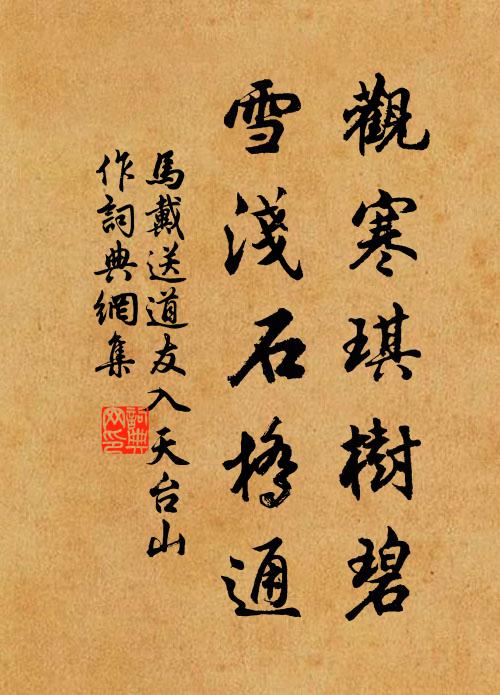 觀寒琪樹碧
雪淺石橋通
馬戴送道友入天台山
作詞典網集
詞典网印